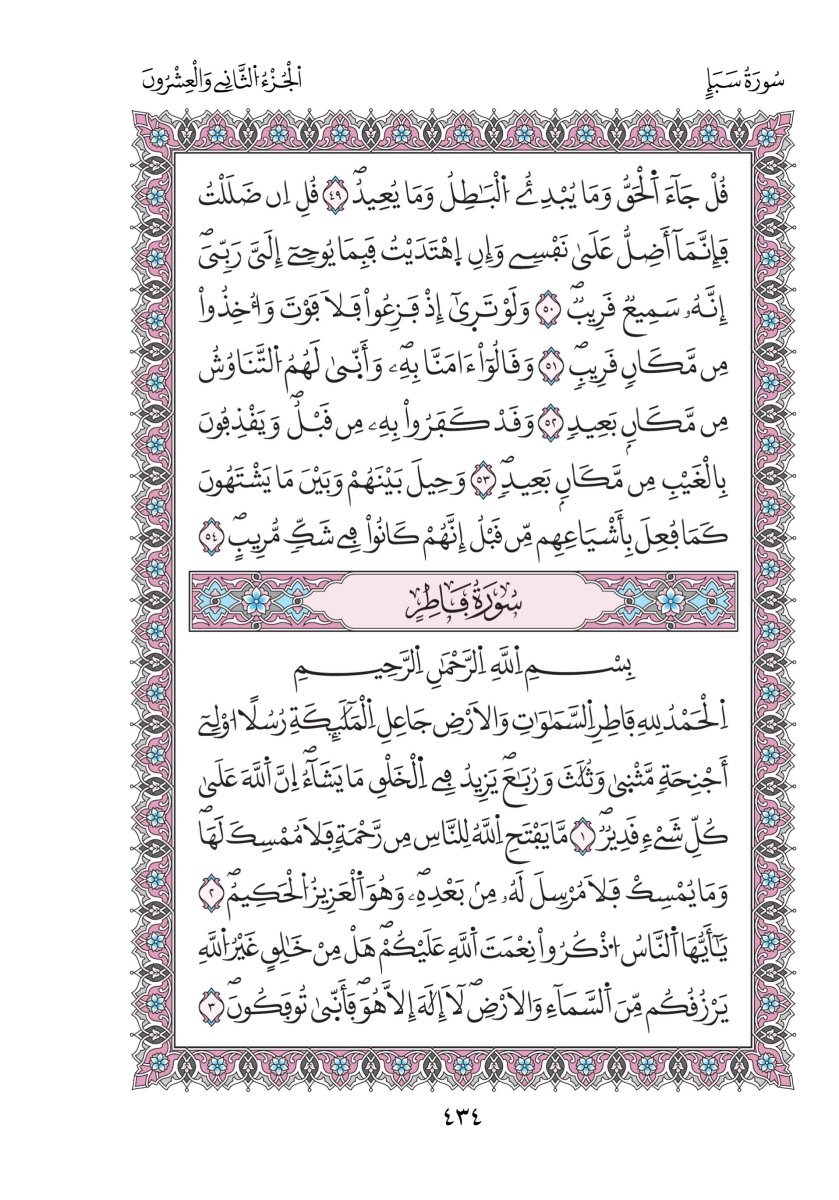 سُورَةُ سَبَإٍ
اَ۬لْجُزْءُ اُ۬لثَّانِے وَالْعِشْرُونَ
قُلْ جَآءَ اَ۬لْحَقُّ وَمَا يُبْدِئُ اُ۬لْبَٰطِلُ وَمَا يُعِيدُۖ ٤٩ قُلِ اِن ضَلَلْتُ
فَإِنَّمَآ أَضِلُّ عَلَىٰ نَفْسِے وَإِنِ اِ۪هْتَدَيْتُ فَبِمَا يُوحِےٓ إِلَىَّ رَبِّىَۖ
إِنَّهُۥ سَمِيعٌ قَرِيبٌۖ ٥٠ وَلَوْ تَر۪ىٰٓ إِذْ فَزِعُواْ فَلَا فَوْتَ وَأُخِذُواْ
مِن مَّكَانٖ قَرِيبٖۖ ٥١ وَقَالُوٓاْ ءَامَنَّا بِهِۦۖ وَأَنّ۪ىٰ لَهُمُ اُ۬لتَّنَاوُشُ
مِن مَّكَانِۢ بَعِيدٖ ٥٢ وَقَدْ كَفَرُواْ بِهِۦ مِن قَبْلُۖ وَيَقْذِفُونَ
بِالْغَيْبِ مِن مَّكَانِۢ بَعِيدٖۖ ٥٣ وَحِيلَ بَيْنَهُمْ وَبَيْنَ مَا يَشْتَهُونَ
كَمَا فُعِلَ بِأَشْيَاعِهِم مِّن قَبْلُ إِنَّهُمْ كَانُواْ فِے شَكّٖ مُّرِيبٖۖ ٥٤
سُورَةُ فَاطِرٍ
بِسْمِ اِ۬للَّهِ اِ۬لرَّحْمَٰنِ اِ۬لرَّحِيمِ
اِ۬لْحَمْدُ لِلهِ فَاطِرِ اِ۬لسَّمَٰوَٰتِ وَالَارْضِ جَاعِلِ اِ۬لْمَلَٰٓئِكَةِ رُسُلًا ا۟وْلِےٓ
أَجْنِحَةٖ مَّثْن۪ىٰ وَثُلَٰثَ وَرُبَٰعَۖ يَزِيدُ فِے اِ۬لْخَلْقِ مَا يَشَآءُۖ اِنَّ اَ۬للَّهَ عَلَىٰ
كُلِّ شَےْءٖ قَدِيرٌۖ ١ مَّا يَفْتَحِ اِ۬للَّهُ لِلنَّاسِ مِن رَّحْمَةٖ فَلَا مُمْسِكَ لَهَاۖ
وَمَا يُمْسِكْ فَلَا مُرْسِلَ لَهُۥ مِنۢ بَعْدِهِۦۖ وَهُوَ اَ۬لْعَزِيزُ اُ۬لْحَكِيمُۖ ٢
يَٰٓأَيُّهَا اَ۬لنَّاسُ اُ۟ذْكُرُواْ نِعْمَتَ اَ۬للَّهِ عَلَيْكُمْۖ هَلْ مِنْ خَٰلِقٍ غَيْرُ اُ۬للَّهِ
يَرْزُقُكُم مِّنَ اَ۬لسَّمَآءِ وَالَارْضِۖ لَآ إِلَٰهَ إِلَّا هُوَۖ فَأَنّ۪ىٰ تُوفَكُونَۖ ٣
٤٣٤